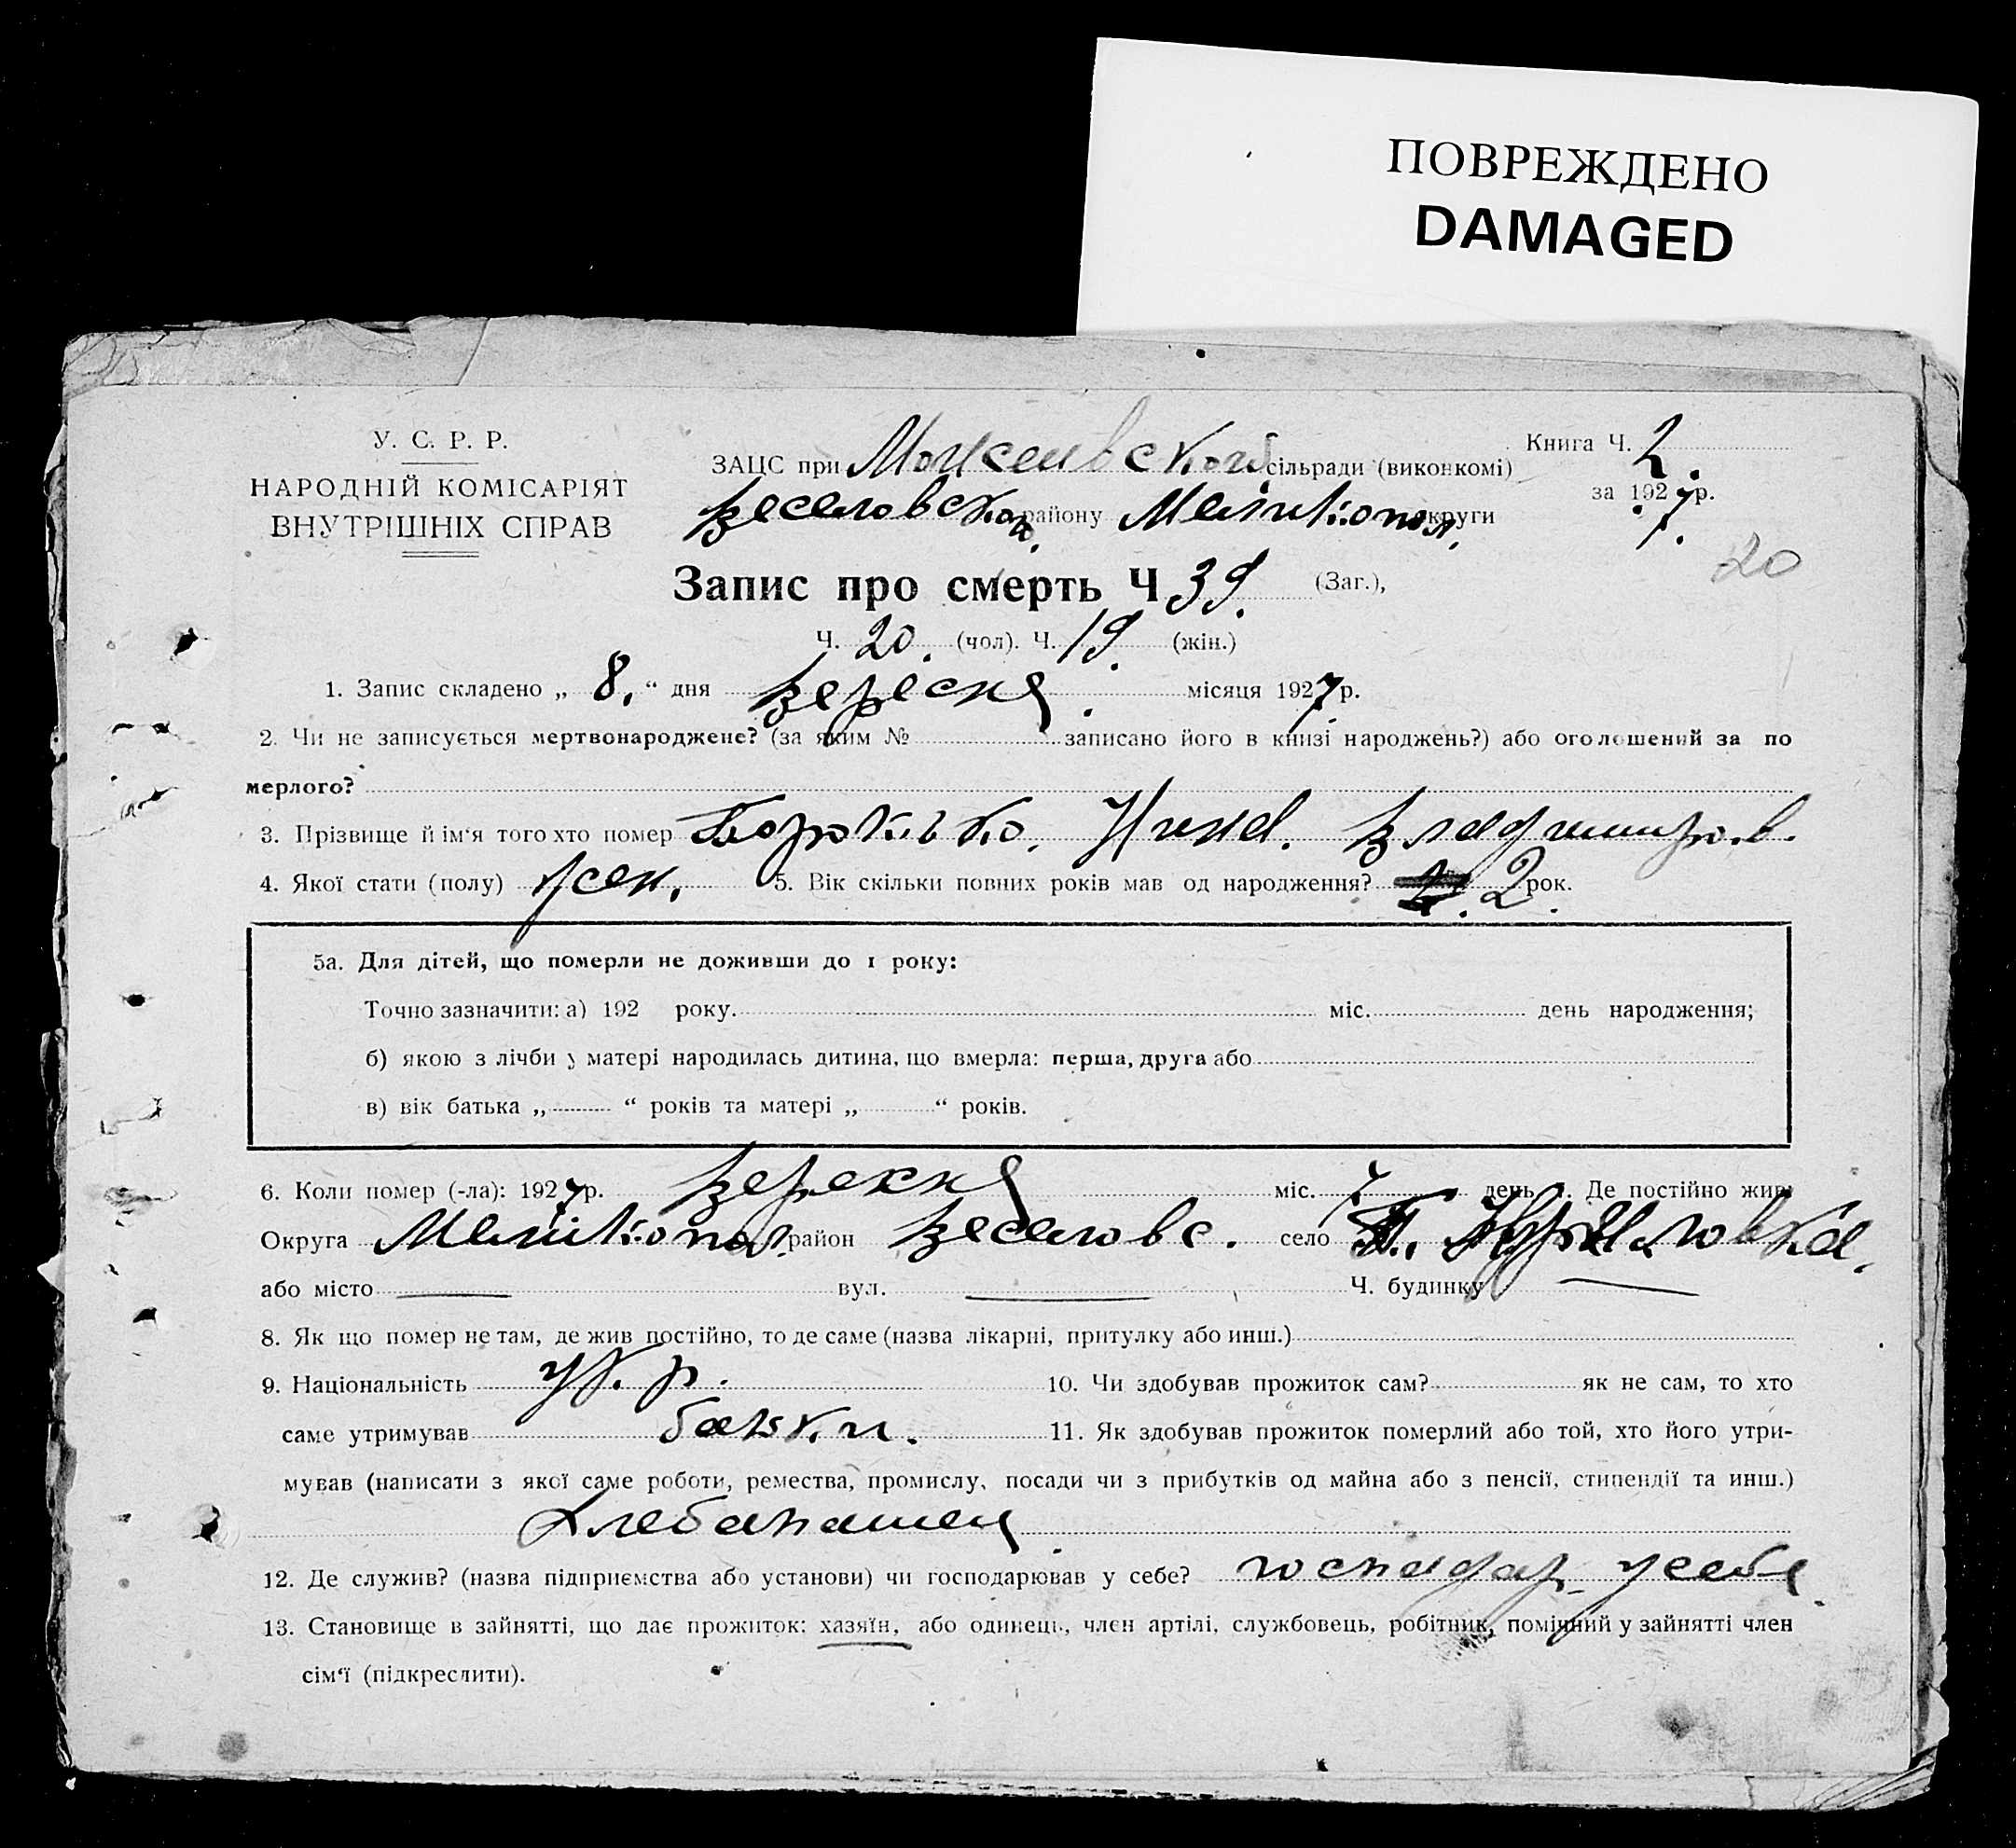 ПОВРЕЖДЕНО
DAMAGED
У. С. Р. Р.
НАРОДНІЙ КОМІСАРІЯТ
ВНУТРІШНІХ СПРАВ
Книга Ч. 2.
за 1927 р.
ЗАЦС при сільради (виконкомі)
Веселовском району Мелітопол. округи
20
Запис про смерть Ч 39. (Заг.),
Ч. 20. (чол). Ч. 19. (жін.)
1. Запис складено „ 8. “ дня Вересня. місяця 1927 р.
2. Чи не записується мертвонароджене? (за яким № записано його в книзі народжень?) або оголошений за по
мерлого?
3. Прізвище й ім‘я того хто помер Нина. Владимиров.
4. Якої стати (полу) жен. 5. Вік скільки повних років мав од народження? 2. рок.
5а. Для дітей, що померли не доживши до 1 року:
Точно зазначити: а) 192 року. міс. день народження;
б) якою з лічби у матері народилась дитина, що вмерла: перша, друга або
в) вік батька „ “ років та матері „ “ років.
6. Коли помер (-ла): 1927 р. міс. 7. день 7. Де постійно жив:
Округа Мелітопол. район Веселовс. село
або місто — вул. — Ч. будинку —
8. Як що помер не там, де жив постійно, то де саме (назва лікарні, притулку або инш.)
9. Національність ук. р. 10. Чи здобував прожиток сам? як не сам, то хто
саме утримував батьки. 11. Як здобував прожиток померлий або той, хто його утри-
мував (написати з якої саме роботи, ремества, промислу, посади чи з прибутків од майна або з пенсії, стипендії та инш.)
Хлебопашец.
12. Де служив? (назва підприємства або установи) чи господарював у себе? господар. у себе.
13. Становище в зайнятті, що дає прожиток: хазяїн, або одинець, член артілі, службовець, робітник, помічний у зайнятті член
сім‘ї (підкреслити).